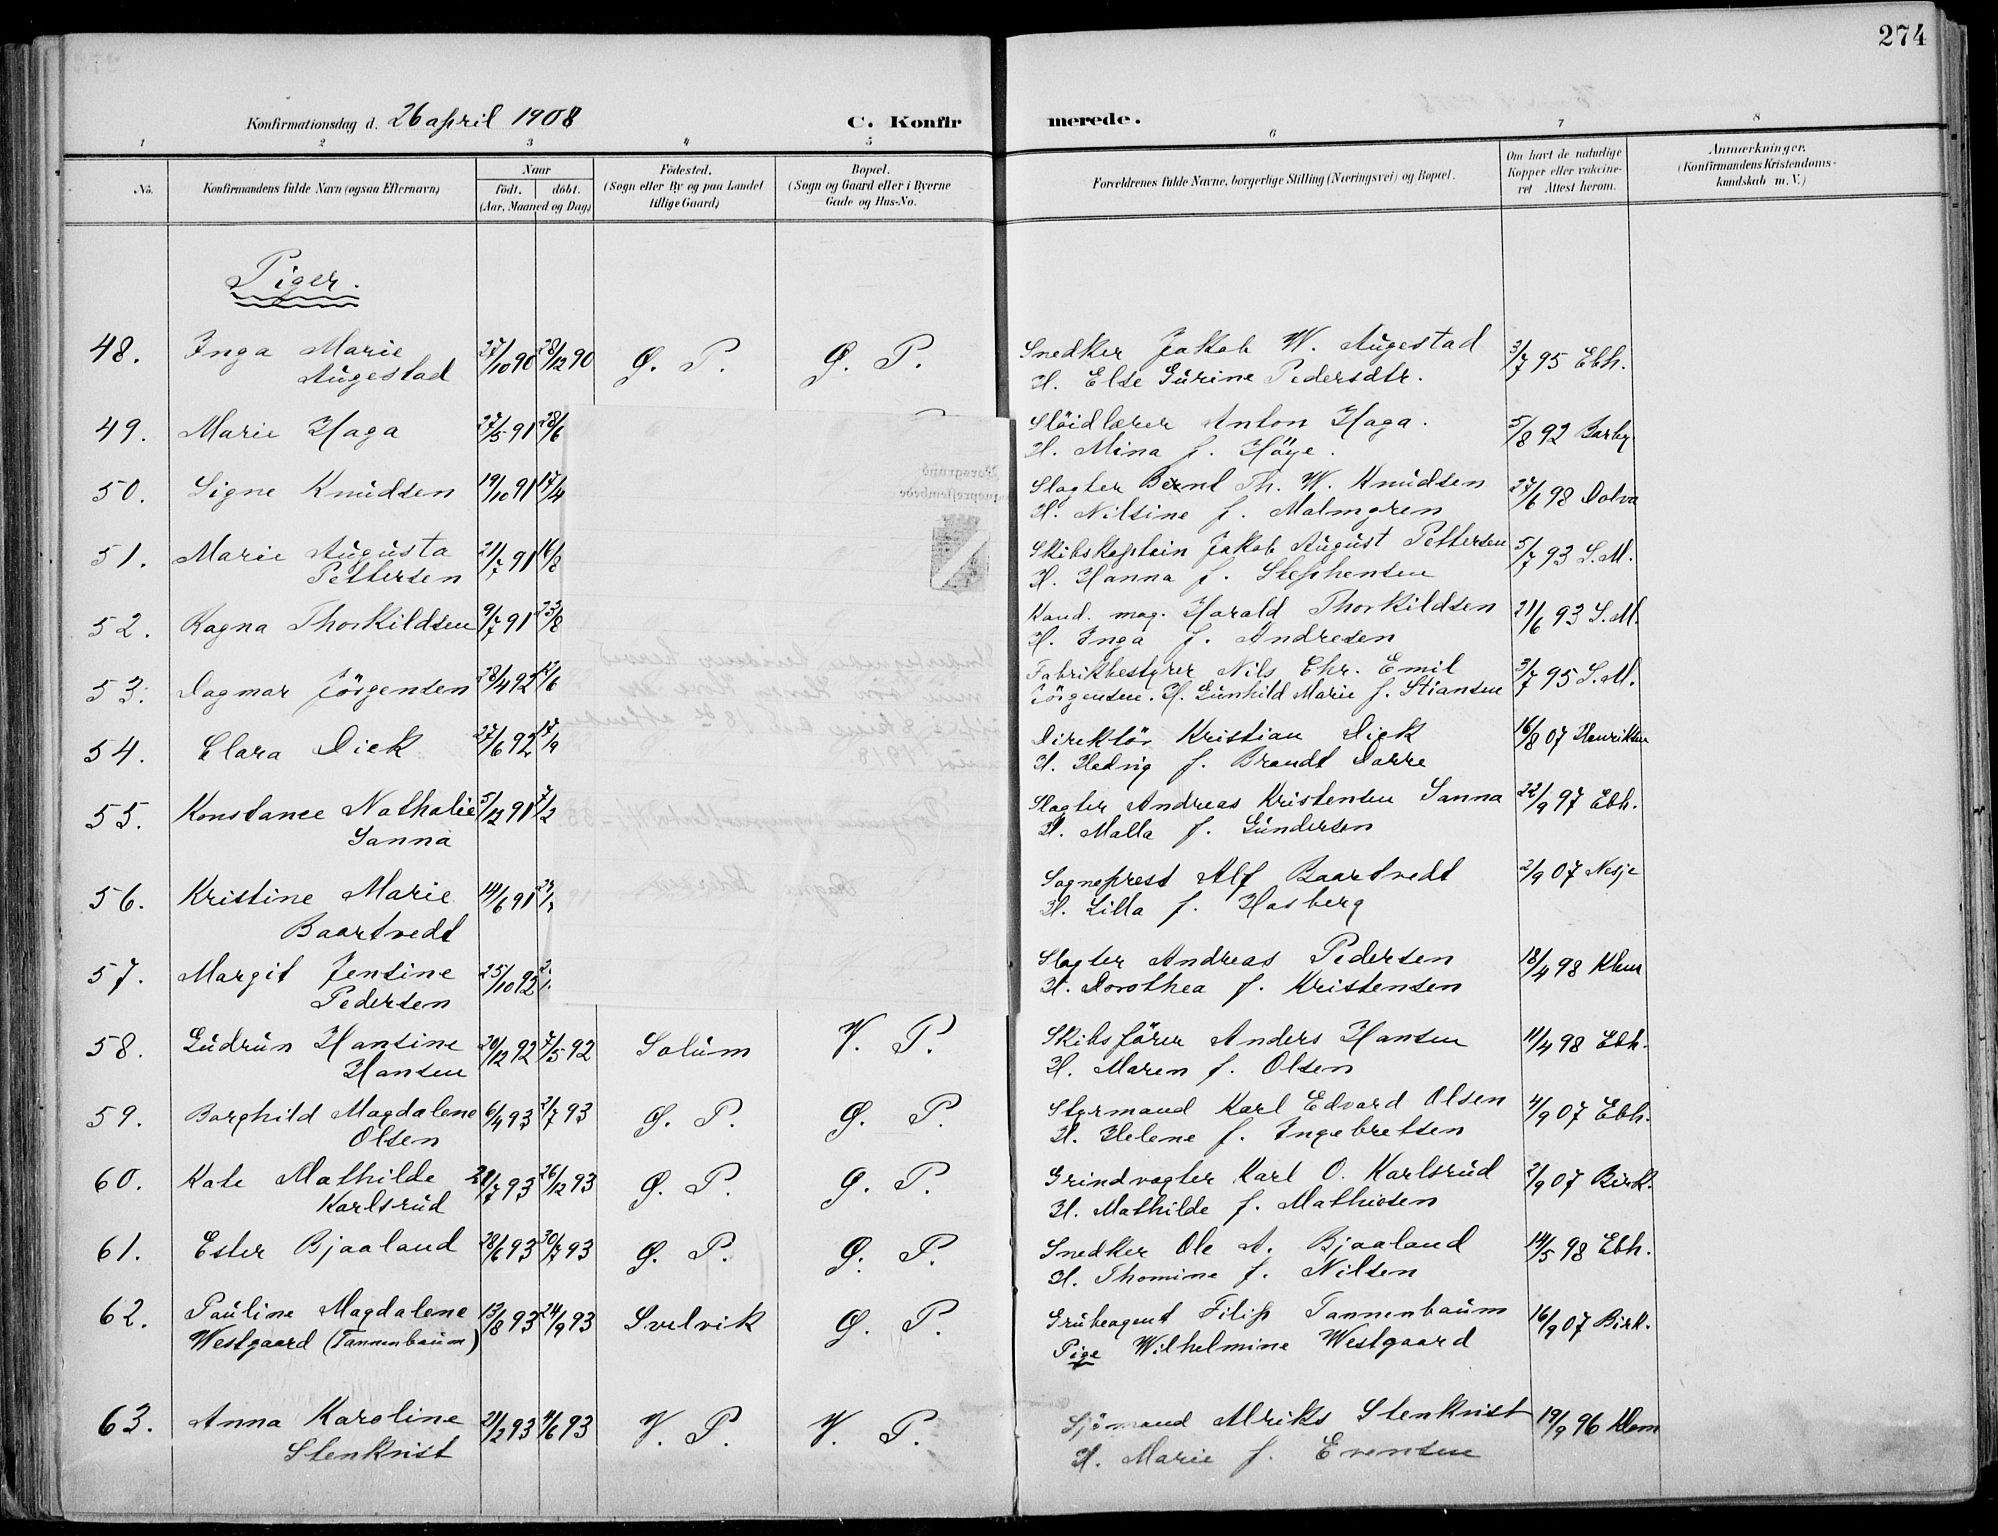 274
Konfirmationsdag d. 26 april 1908
C. Konfirmerede.
1 2 3 4 5 6 7 8
No.
Konfirmandens fulde Navn (ogsaa Efternavn)
Naar
født. døbt.
(Aar, Maaned og Dag)
Födested.
(Sogn eller By og paa Landet
tillige Gaard)
Bopæl.
(Sogn og Gaard eller i Byerne
Gade og Hus-No.
Forældrenes fulde Navne, borgerlige Stilling (Næringsvei) og Bopæl.
Om havt de naturlige
Kopper eller vakcine-
ret Attest herom.
Anmærkninger.
(Konfirmandens Kristendoms-
kundskab m. V.)
Piger.
48. Inga Marie 27/10 90 28/12 90 Ø. P. Ø. P. Snedker Jakob W. Augestad 3/7 95 Ebh.
Augestad H. Else Gurine Pedersdtr.
49. Marie Haga 27/5 91 28/6 Slöidlærer Anton Haga. 5/8 92 Barby
H. Mina f. Höye.
50. Signe Knudsen 19/10 91 17/4 Slagter Bernt Th. W. Knudsen 27/6 98 Dolva
H. Nilsine f. Malmgren
51. Marie Augusta 21/7 91 16/8 Skibskaptein Jakob August Pettersen 5/7 93 S. M.
Pettersen H. Hanna f. Stephensen
52. Ragna Thorkildsen 9/7 91 23/8 Kand. mag. Harald Thorkildsen 21/6 93 S. M.
H. Inga f. Andresen
53. Dagmar Jörgensen 28/4 92 12/6 Fabrikbestyrer Nils Chr. Emil 3/7 95 S. M.
Jörgensen. H. Gunhild Marie f. Stiansen
54. Clara Dick 27/6 92 17/9 Direktör Kristian Dick 16/8 07 Henriksen
H. Hedvig f. Brandt Dorre
55. Konstance Nathalie 5/12 91 7/2 Slagter Andreas Kristensen Sanna 22/9 97 Ebh.
Sanna H. Malla f. Gundersen
56. Kristine Marie 14/6 91 Sogneprest Alf Baartvedt 2/9 07 Nesje
Baartvedt H. Lilla f. Hasberg
57. Margit Jensine 25/10 92 Slagter Andreas Pedersen 18/4 98 Klem
Pedersen H. Dorothea f. Kristensen
58. Gudrun Hansine 20/12 92 7/5 92 Solum V. P. Skibsförer Anders Hansen 11/4 98 Ebh.
Hansen H. Maren f. Olsen
59. Borghild Magdalene 6/4 93 2/7 93 Ø. P. Ø. P. Styrmand Karl Edvard Olsen 4/9 07 Ebh.
Olsen H. Helene f. Ingebretsen
60. Kate Mathilde 21/7 93 26/12 93 Ø. P. Ø. P. Grindvagter Karl O. Karlsrud 2/9 07 Birk.
Karlsrud H. Mathilde f. Mathisen
61. Ester Bjaaland 28/6 93 30/7 93 Ø. P. Ø. P. Snedker Ole A. Bjaaland 14/5 98 Ebh.
H. Thomine f. Nilsen
62. Pauline Magdalene 13/8 93 24/9 93 Svelvik Ø. P. Grubeagent Filip Tannenbaum 16/9 07 Birk.
Westgaard (Tannenbaum) Pige Wilhelmine Westgaard
63. Anna Karoline 21/2 93 4/6 93 V. P. V. P. Sjömand Alriks Stenkvist 19/9 96 Klem
Stenkvist H. Marie f. Evensen